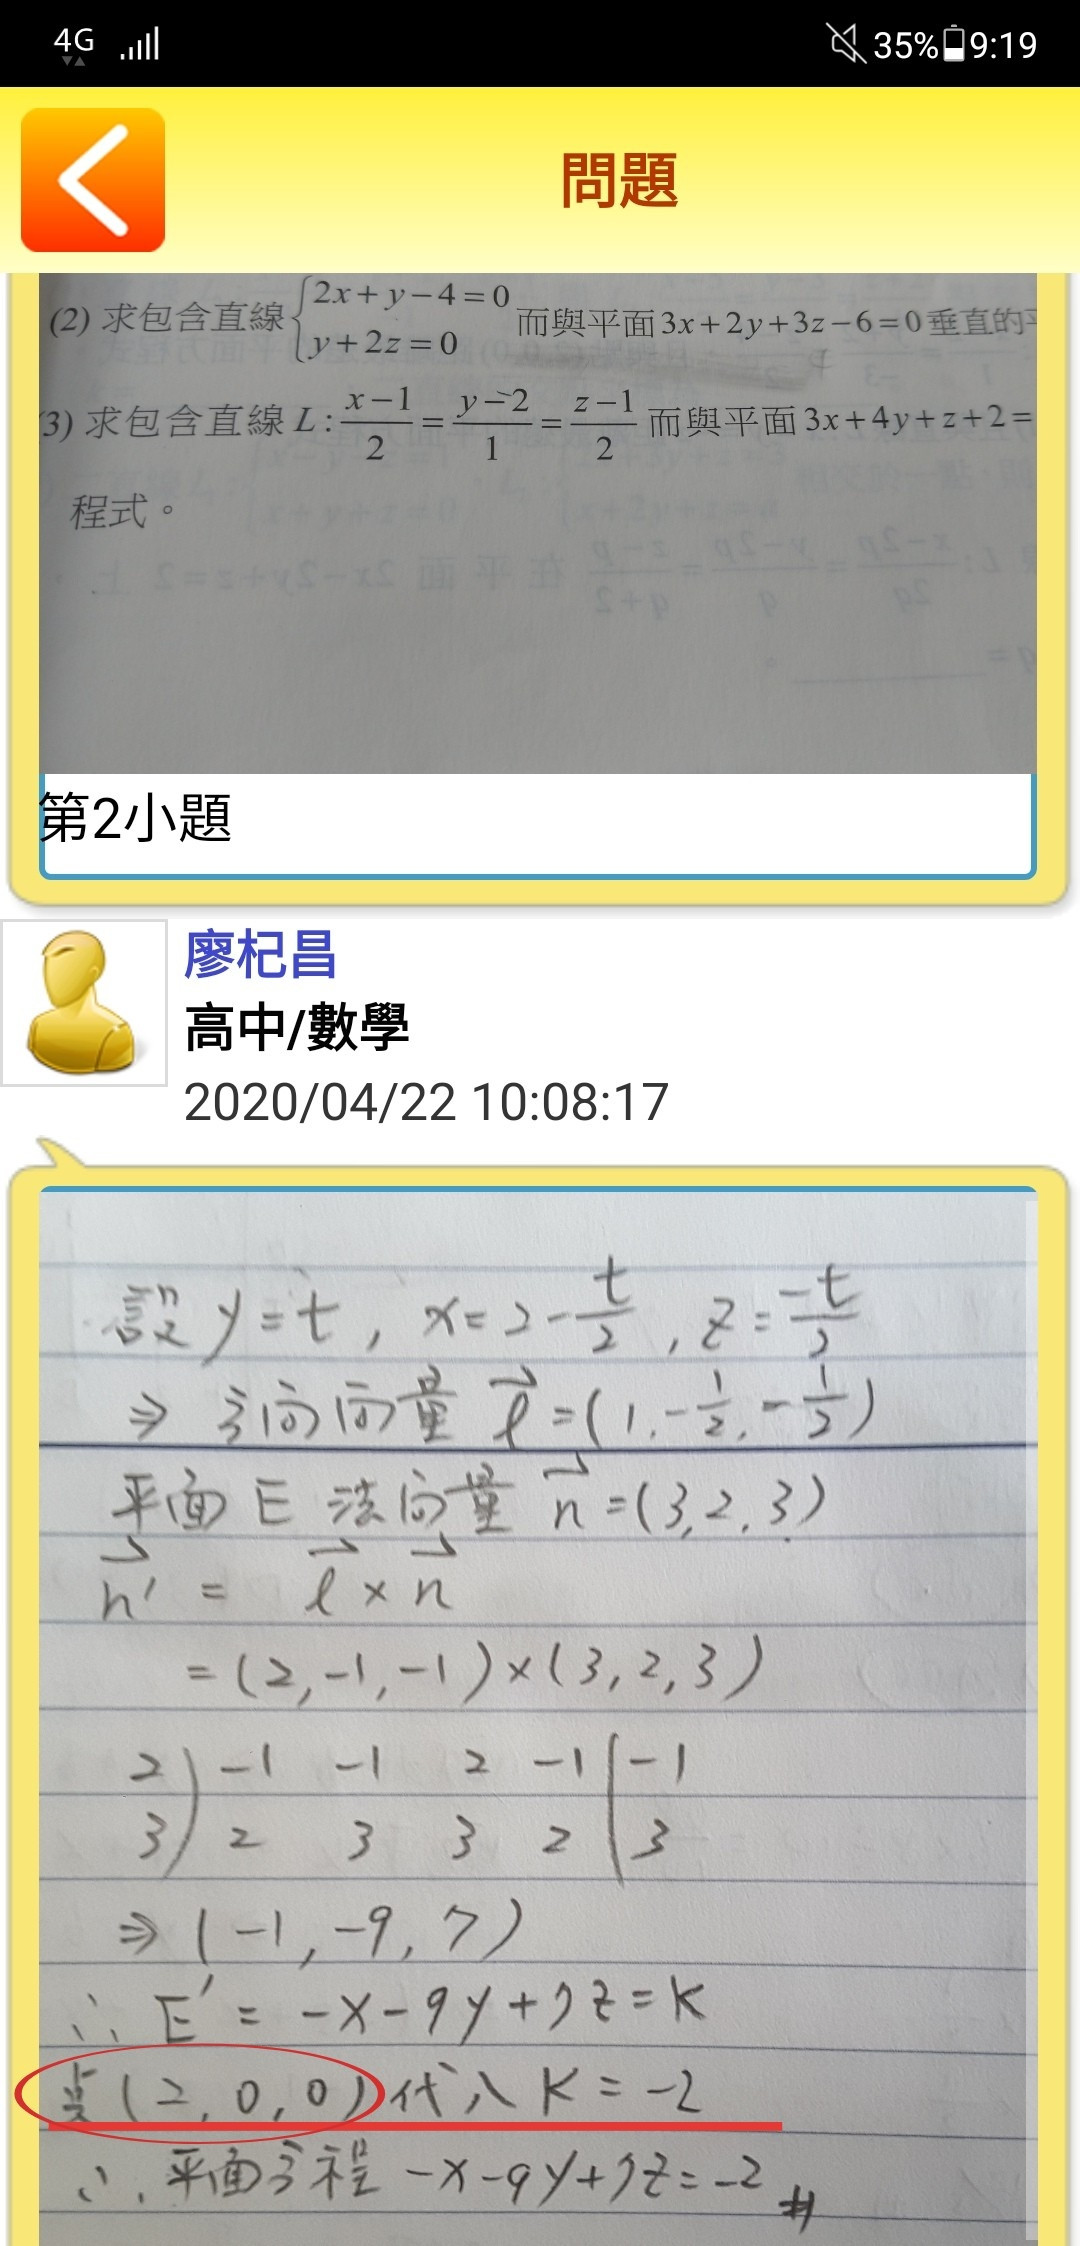 4G 35% 9:19
問題
(2) 求包含直線 { 2x+y-4=0 y+2z=0 而與平面3x+2y+3z-6=0垂直的平
(3) 求包含直線 L: x-1/2 = y-2/1 = z-1/2 而與平面3x+4y+z+2=
程式。
第2小題
廖杞昌
高中/數學
2020/04/22 10:08:17
設 y=t, x=2-t/2, z=-t/2
⇒ 方向向量 ℓ⃗=(1,-1/2,-1/2)
平面 E 法向量 n⃗=(3,2,3)
n⃗' = ℓ⃗ × n⃗
=(2,-1,-1)×(3,2,3)
2) -1 -1 2 -1 |-1
3) 2 3 3 2 | 3
⇒ (-1,-9,7)
∴ E' = -x-9y+7z=K
点(2,0,0)代入 K=-2
∴ 平面方程 -x-9y+7z=-2 #